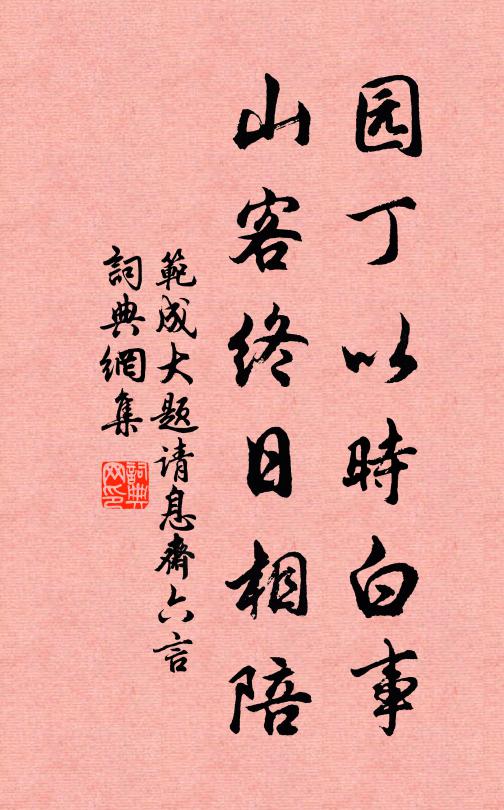 园丁以時白事
山客终日相陪
範成大题请息齋六言
詞典網集
詞典網印